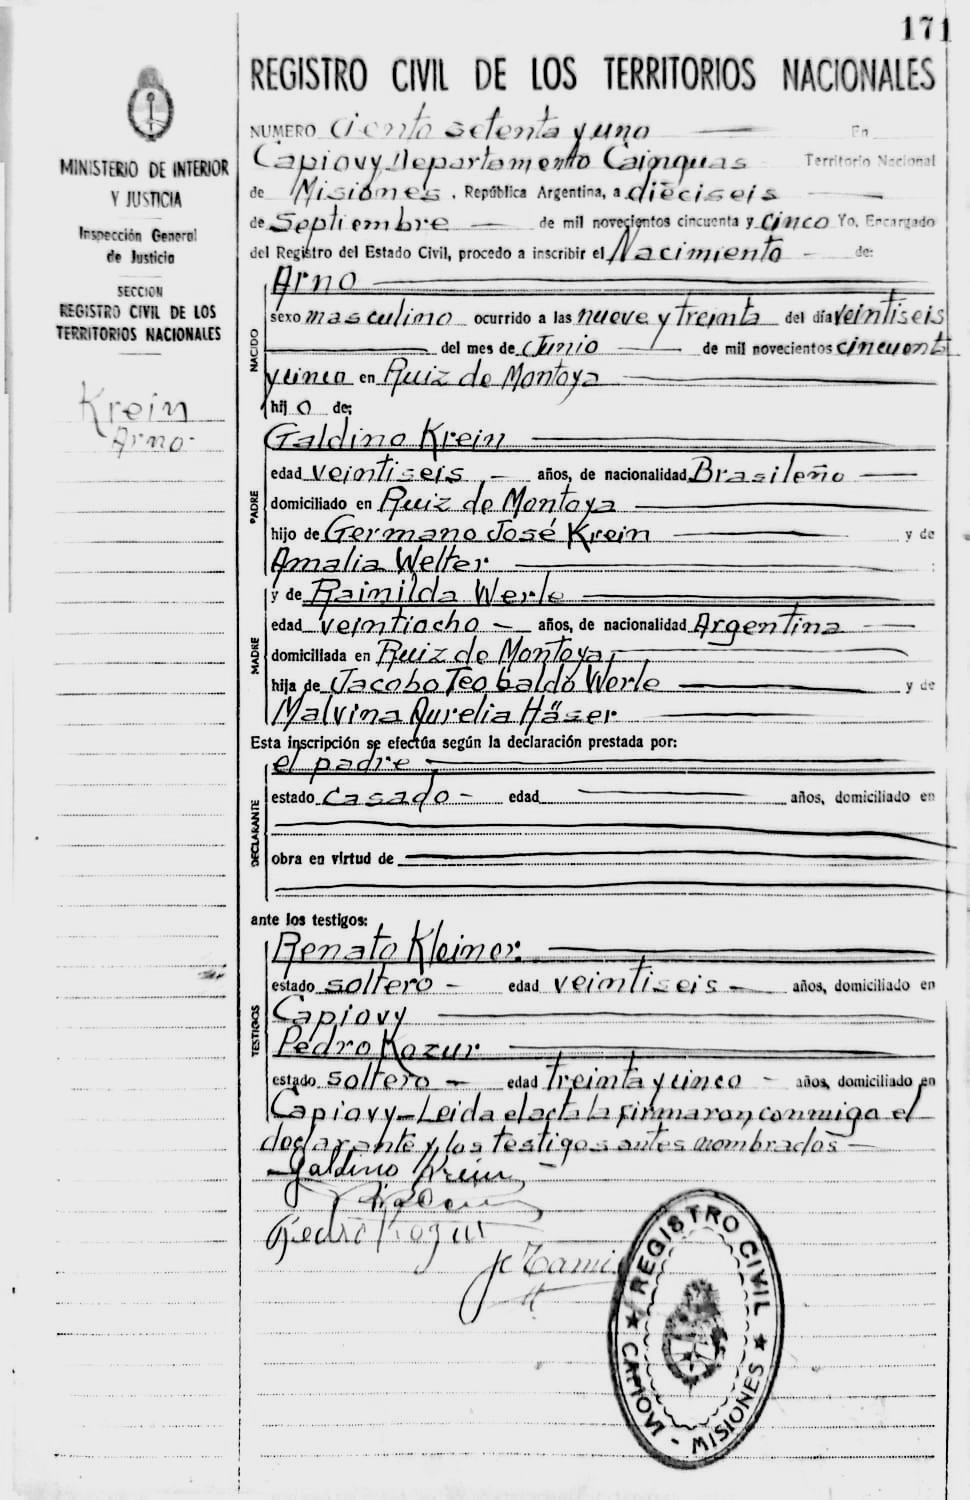 171
REGISTRO CIVIL DE LOS TERRITORIOS NACIONALES
MINISTERIO DE INTERIOR
Y JUSTICIA
Inspección General
de Justicia
SECCION
REGISTRO CIVIL DE LOS
TERRITORIOS NACIONALES
Krein
Arno-
NUMERO Ciento setenta y uno En
Capiovy Departamento Cainguas Territorio Nacional
de Misiones, República Argentina, a dieciseis
de Septiembre de mil novecientos cincuenta y cinco Yo, Encargado
del Registro del Estado Civil, procedo a inscribir el Nacimiento de:
NACIDO
Arno
sexo masculino ocurrido a las nueve y treinta del día veintiseis
del mes de Junio de mil novecientos cincuenta
y cinco en Ruiz de Montoya
hij o de:
PADRE
Galdino Krein
edad veintiseis años, de nacionalidad Brasileño
domiciliado en Ruiz de Montoya
hijo de Germano José Krein y de
Amalia Welter
MADRE
y de Raimilda Werle
edad veintiocho - años, de nacionalidad Argentina
domiciliada en Ruiz de Montoya
hija de Jacobo Teobaldo Werle y de
Malvina Aurelia Häser
Esta inscripción se efectúa según la declaración prestada por:
DECLARANTE
el padre
estado casado - edad años, domiciliado en
obra en virtud de
ante los testigos:
TESTIGOS
Renato Kleiner.
estado soltero - edad veintiseis - años, domiciliado en
Capiovy
Pedro Kozur
estado soltero - edad treinta y cinco - años, domiciliado en
Capiovy-Leida el acta la firmaron, conmigo el
declarante y los testigos antes nombrados
Galdino Krein
Pedro Kozur
REGISTRO CIVIL
CAPIOVI - MISIONES